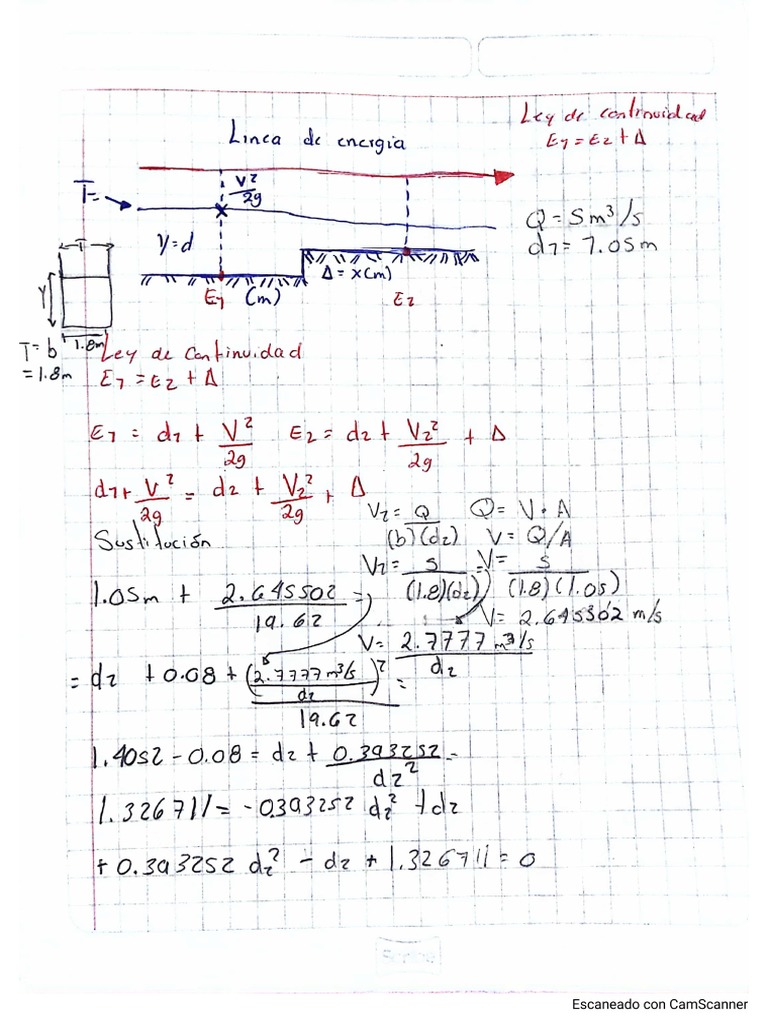 Ley de continuidad
E1 = E2 + Δ
Linea de energia
V²/2g
T=
Q = 5 m³/s
d1 = 1.05m
T
y = d
Δ = x(m)
Y
E1 (m)
E2
1.8m
T = b
= 1.8m
Ley de Continuidad
E1 = E2 + Δ
E1 = d1 + V²/2g E2 = d2 + V2²/2g + Δ
d1 + V²/2g = d2 + V2²/2g + Δ
V2 = Q/(b)(d2) Q = V · A
V = Q/A
Sustitución
V2 = 5/(1.8)(d2) V = 5/(1.8)(1.05)
V = 2.645502 m/s
1.05m + 2.645502/19.62 =
V = 2.7777 m³/s / d2
= d2 + 0.08 + (2.7777 m³/s / d2)² / 19.62 =
1.4052 - 0.08 = d2 + 0.393252/d2² =
1.326711 = -0.393252 d2² + d2
+ 0.393252 d2² - d2 + 1.326711 = 0
Escaneado con CamScanner